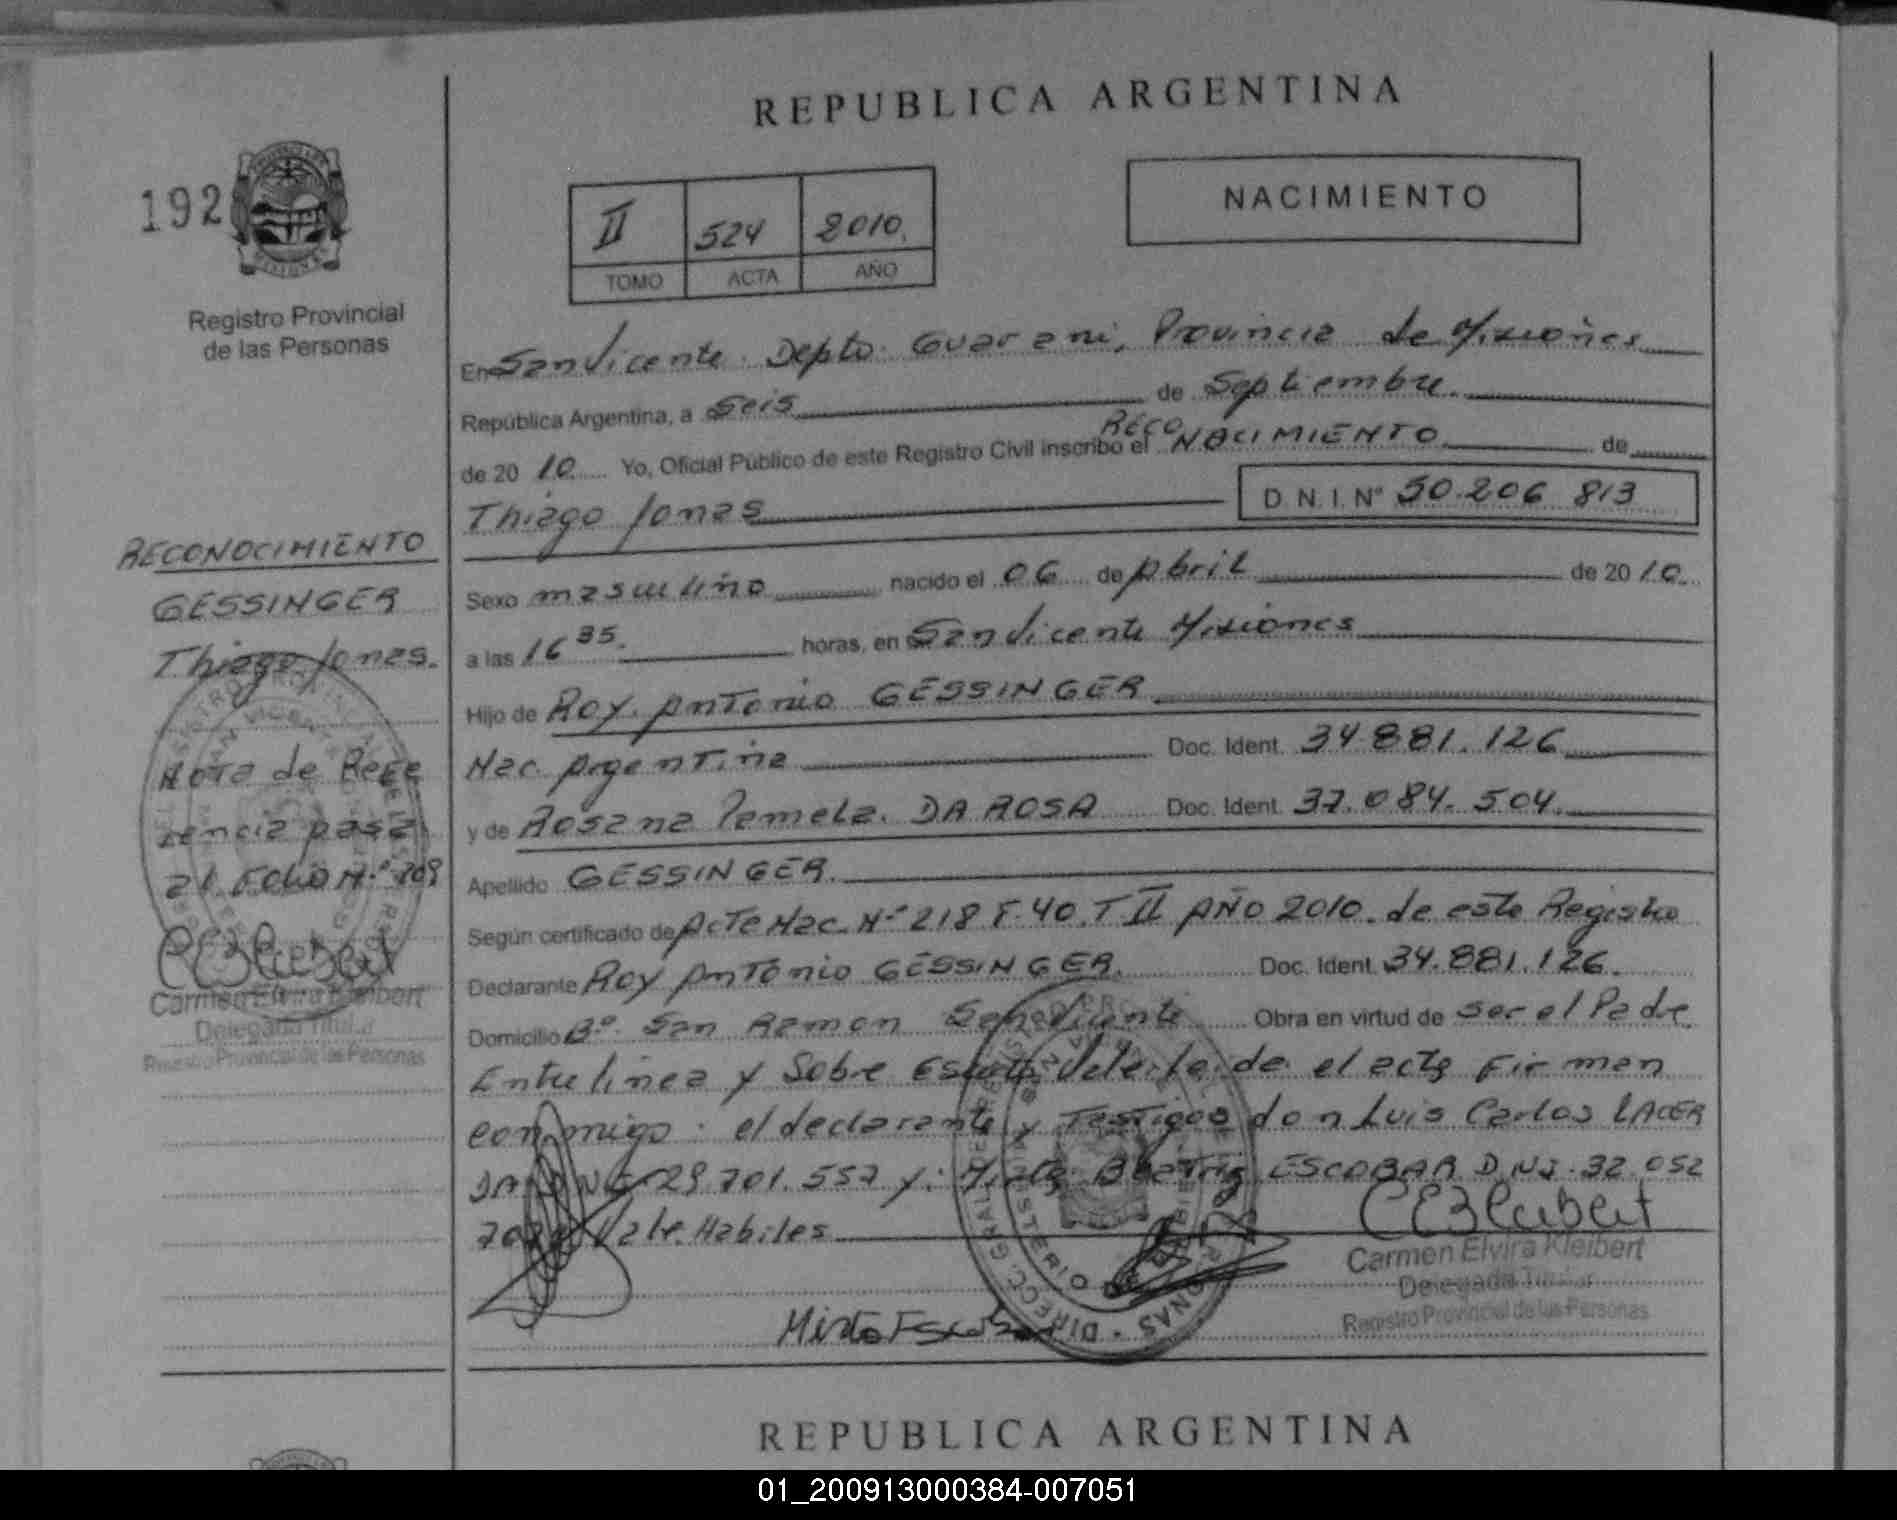 REPUBLICA ARGENTINA
192
II 524 2010.
TOMO ACTA AÑO
NACIMIENTO
Registro Provincial
de las Personas
En San Vicente. Depto. Guarani, Provincia de Misiones
República Argentina, a Seis de Septiembre.
RECO
de 20 10 Yo, Oficial Público de este Registro Civil inscribo el NACIMIENTO de
Thiago Jonas D. N. I. N° 50.206 813
RECONOCIMIENTO
GESSINGER
Thiago Jonas.
Nota de Refe
rencia pasa
al FOLIO N.° 209
Carmen Elvira Kleibert
Delegada Titular
Registro Provincial de las Personas
Sexo masculino nacido el 06 de Abril de 20 10
a las 16 35. horas, en San Vicente Misiones
Hijo de Roy. Antonio GESSINGER
Nac. Argentina Doc. Ident. 34.881.126
y de Rosana Pamela. DA ROSA Doc. Ident. 37.084.504.
Apellido GESSINGER.
Según certificado de Acta Nac. N° 218 F. 40. T II AÑO 2010. de este Registro
Declarante Roy Antonio GESSINGER. Doc. Ident. 34.881.126.
Domicilio B°. San Ramon San Vicente Obra en virtud de ser el Padre
Entre linea y Sobre Vale. el acta Firman
conmigo: el declarante y Testigos don Luis Carlos LACER
DA DNI 29.701.557 y: Mirta Beatriz ESCOBAR D.N.I. 32.052
Vale. Habiles
Mirta Escobar
Carmen Elvira Kleibert
Delegada Titular
Registro Provincial de las Personas
REPUBLICA ARGENTINA
01_200913000384-007051